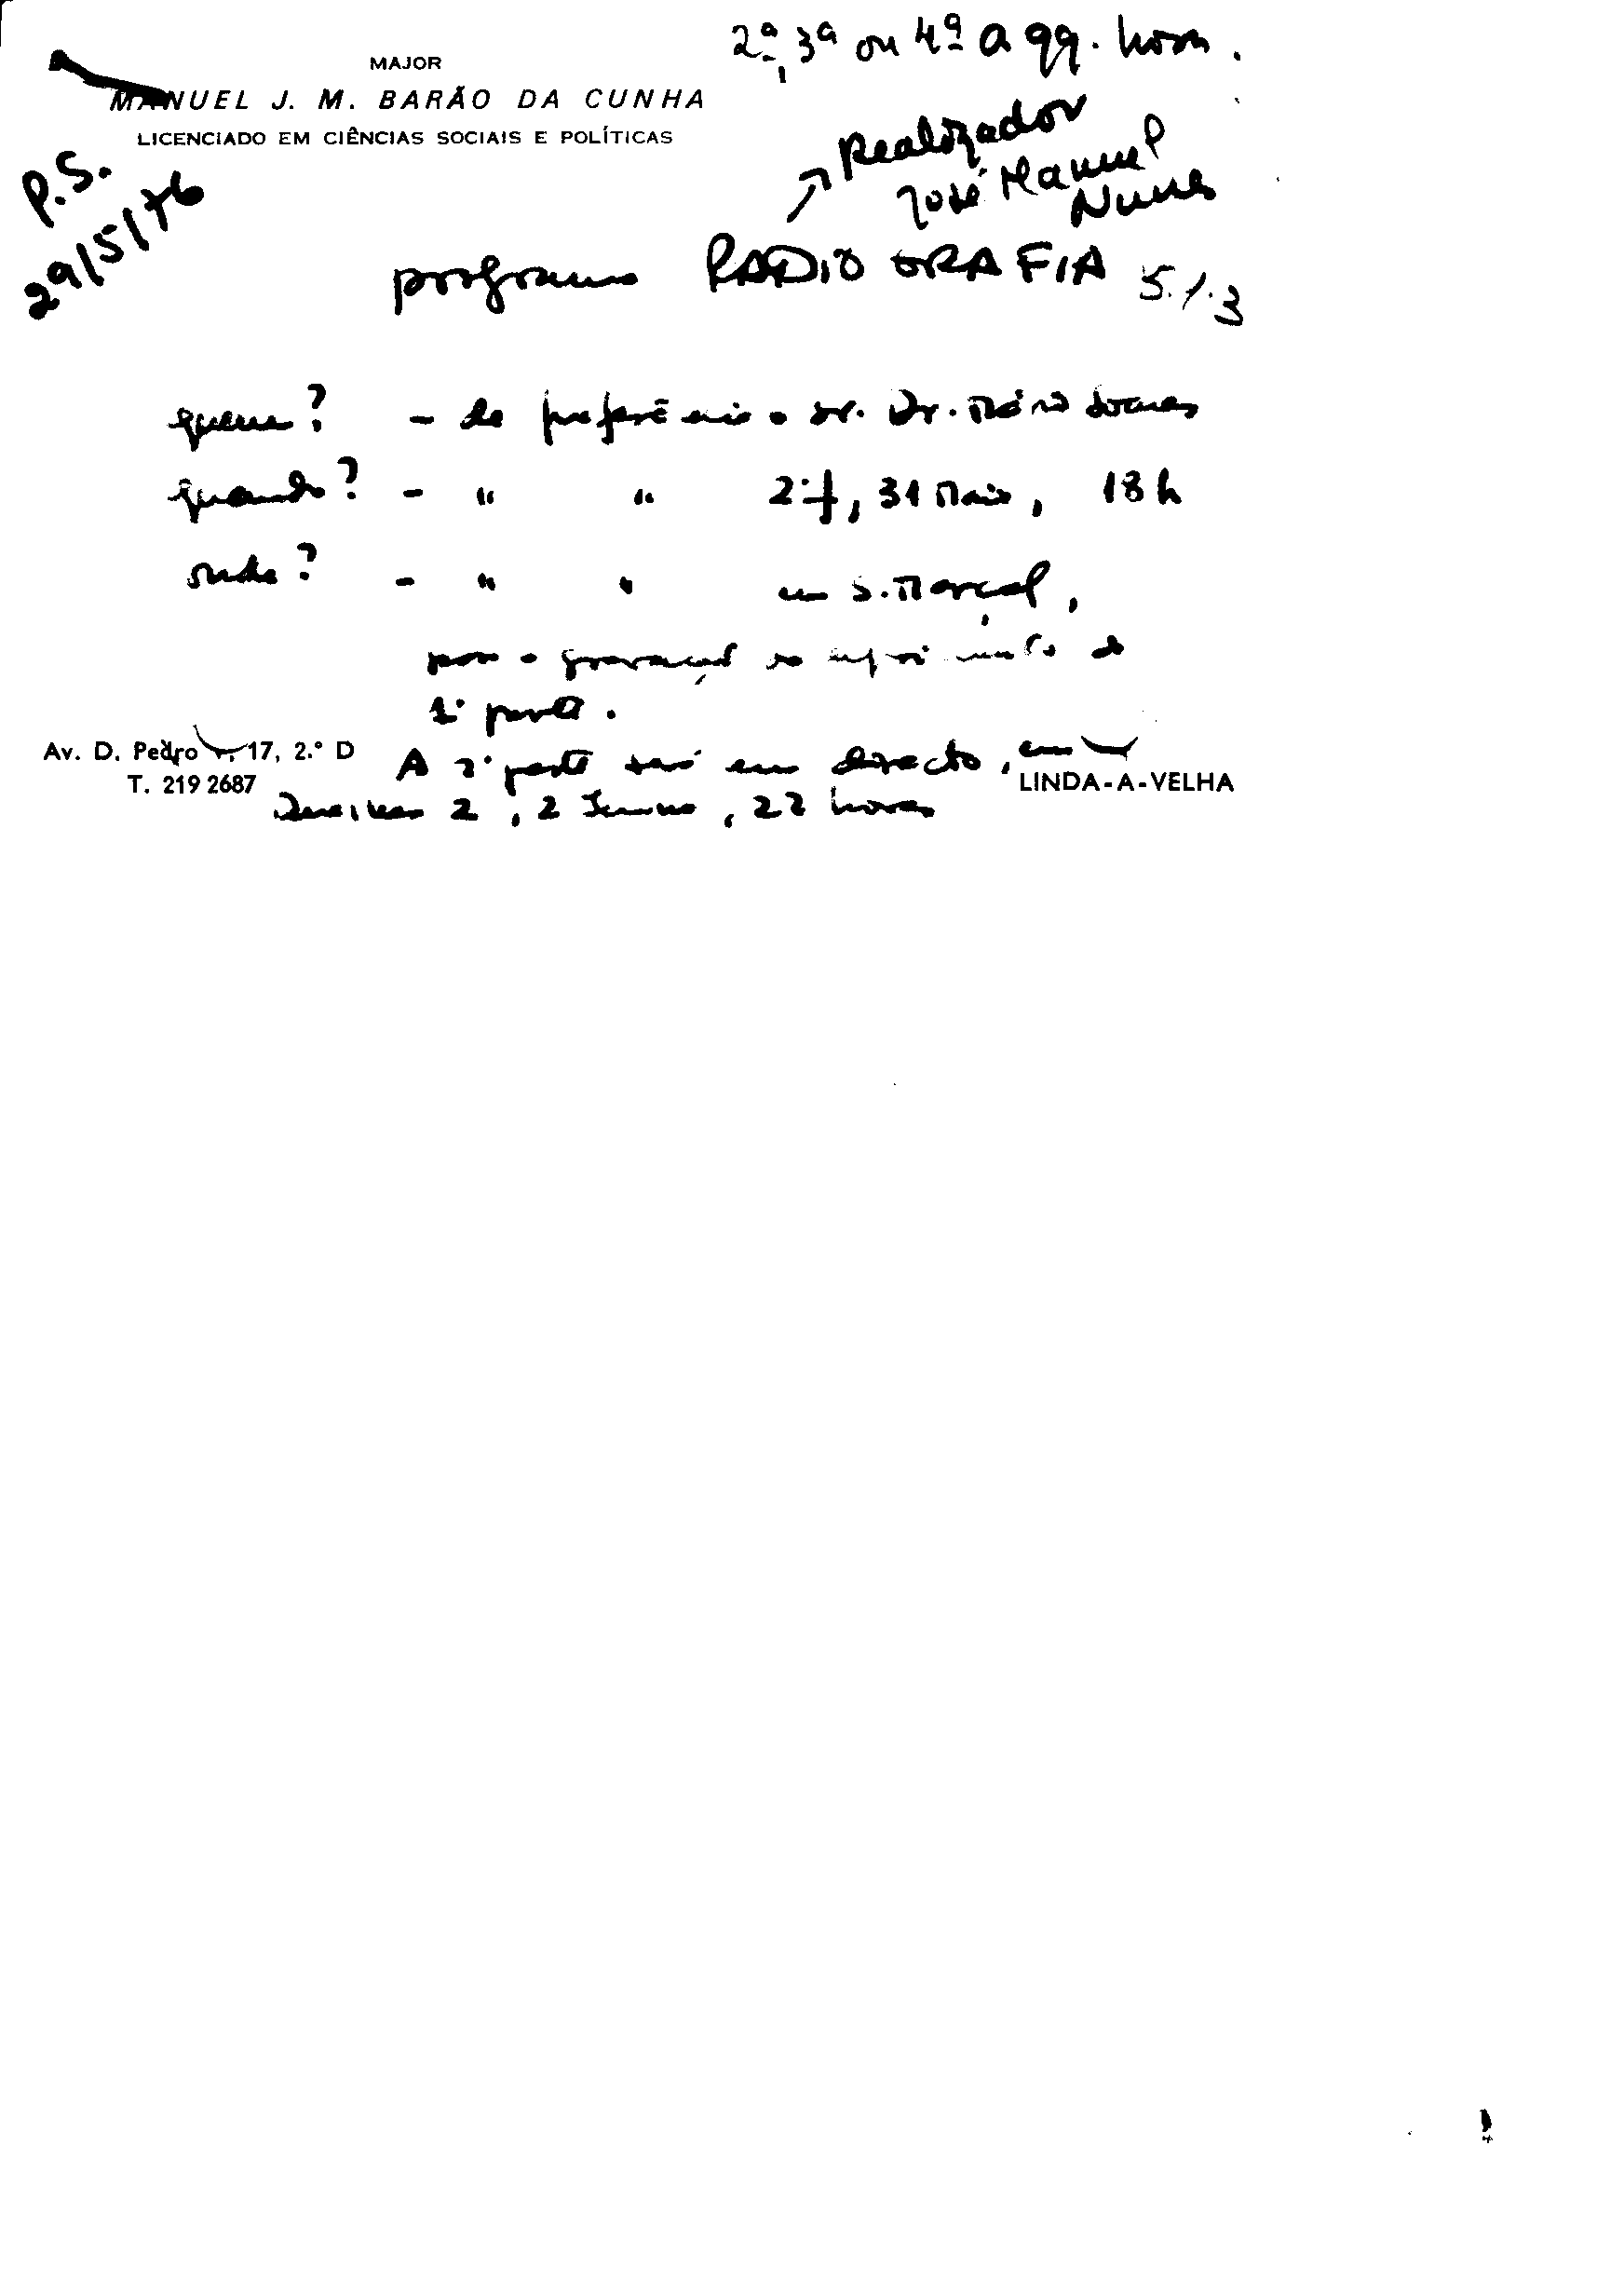 2ª, 3ª ou 4ª a qq. hora.
MAJOR
MANUEL J. M. BARÃO DA CUNHA
LICENCIADO EM CIÊNCIAS SOCIAIS E POLÍTICAS
Realizador
José Manuel
Nunes
P.S.
29/5/76
programa RADIOGRAFIA 5.1.3
quem? - de preferência o Sr. Dr. Mário Soares
quando? - " " 2ª f, 31 Maio, 18h
onde? - " " em S. Marçal,
para a gravação do
1ª parte.
Av. D. Pedro V, 17, 2.º D
T. 219 2687
A 2ª parte será em directo, em
LINDA-A-VELHA
2, 2 Junho, 22 horas